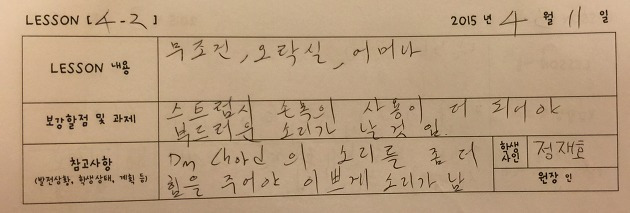 LESSON [ 4-2 ] 2015 년 4 월 11 일
LESSON 내용 무조건, 오락실, 어머나
보강할점 및 과제 스트럼시 손목의 사용이 더 되어야
부드러운 소리가 날 것 임.
참고사항 Dm chord 의 소리를 좀 더 학생 사인 정재호
(발전상황, 학생상태, 계획 등) 힘을 주어야 이쁘게 소리가 남 원장 인